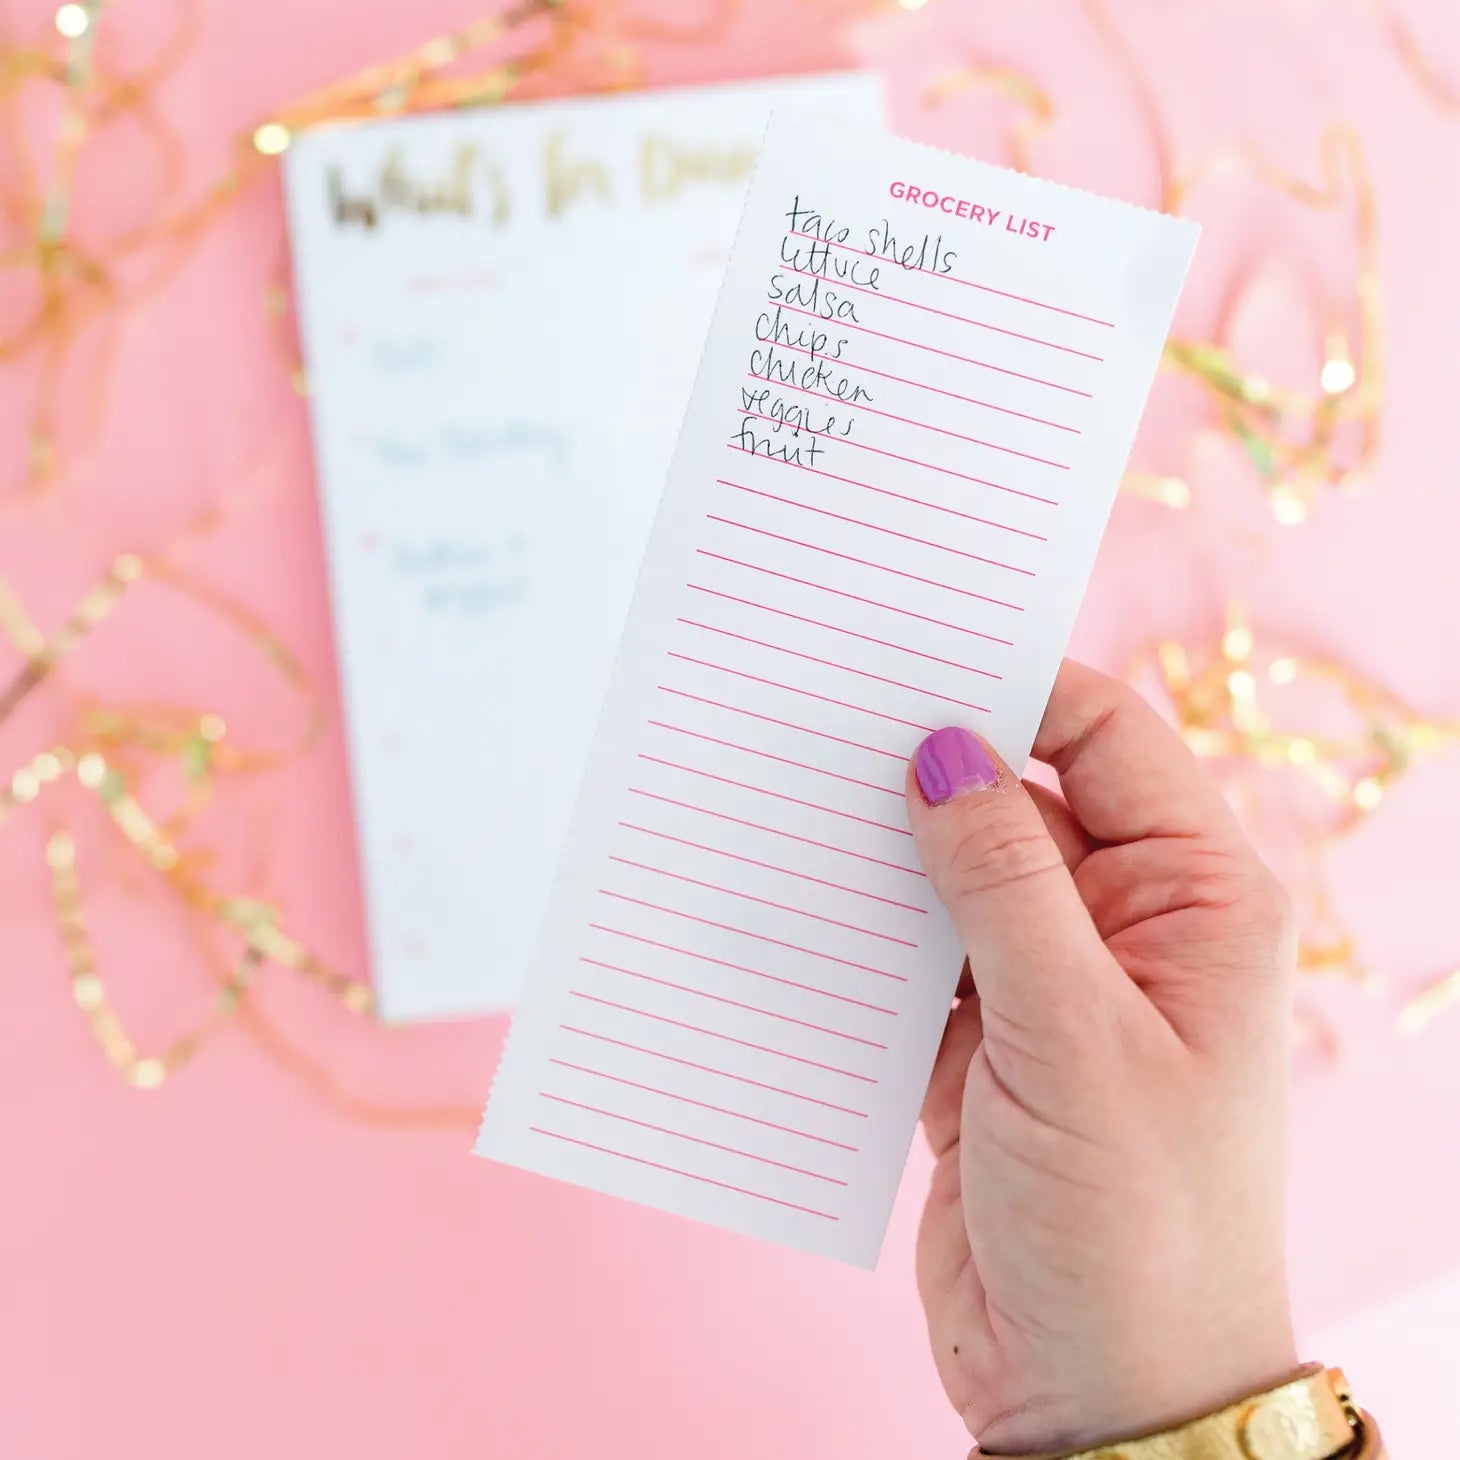 What's for
GROCERY LIST
taco shells
lettuce
salsa
chips
chicken
veggies
fruit